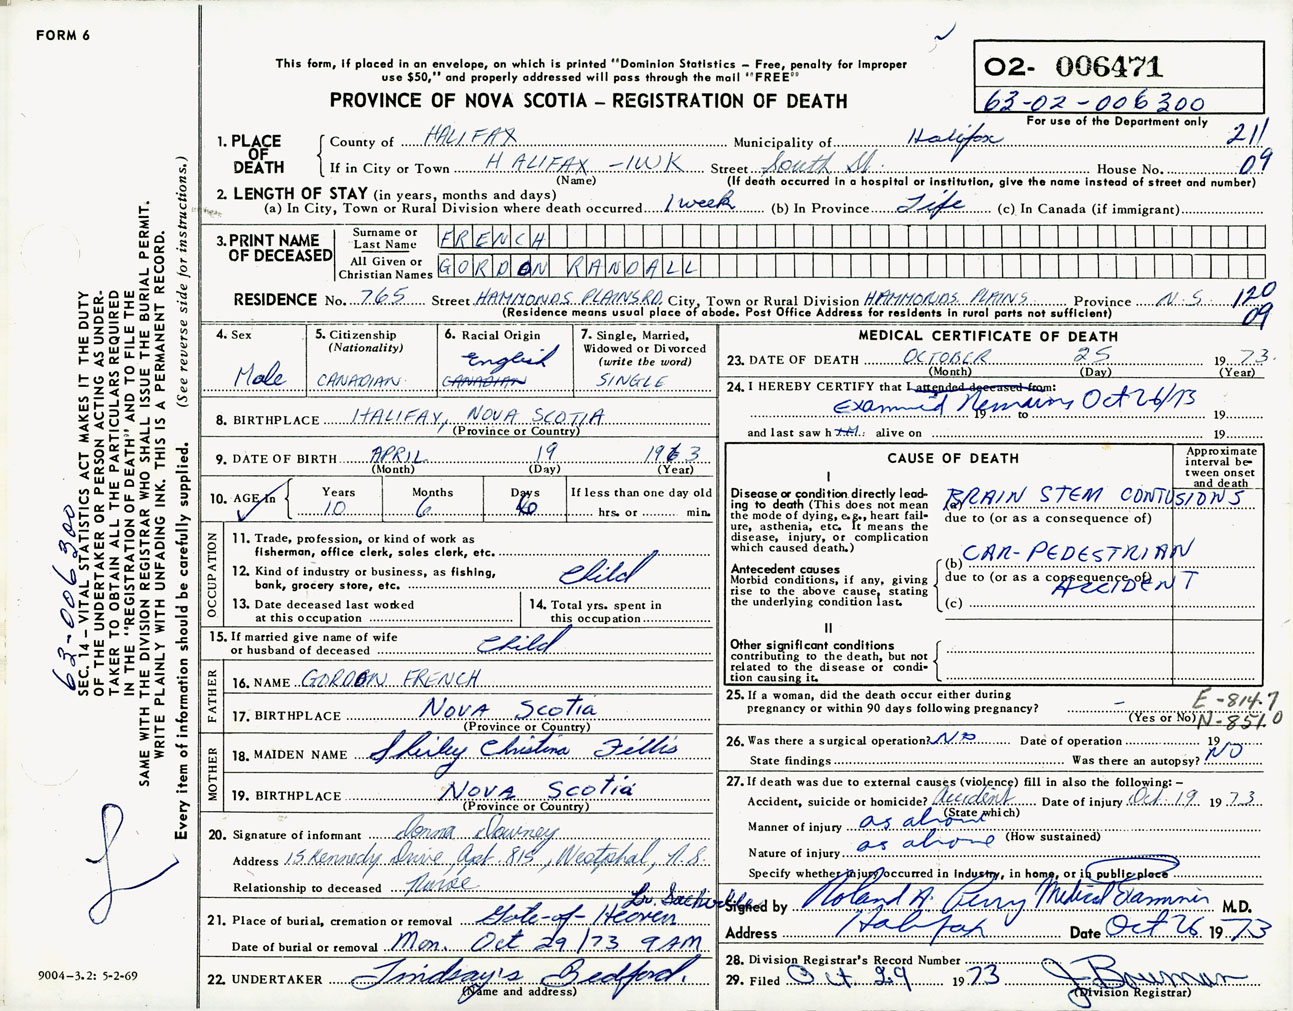 FORM 6
This form, if placed in an envelope, on which is printed "Dominion Statistics – Free, penalty for improper
use $50," and properly addressed will pass through the mail "FREE"
PROVINCE OF NOVA SCOTIA – REGISTRATION OF DEATH
02- 006471
63-02-006300
For use of the Department only
1. PLACE OF DEATH
County of HALIFAX Municipality of Halifax 211
If in City or Town HALIFAX - IWK Street South St. House No. 09
(Name) (If death occurred in a hospital or institution, give the name instead of street and number)
2. LENGTH OF STAY (in years, months and days)
(a) In City, Town or Rural Division where death occurred 1 week (b) In Province Life (c) In Canada (if immigrant)
3. PRINT NAME OF DECEASED
Surname or Last Name FRENCH
All Given or Christian Names GORDON RANDALL
RESIDENCE No. 765 Street HAMMONDS PLAINS RD City, Town or Rural Division HAMMONDS PLAINS Province N.S. 120
(Residence means usual place of abode. Post Office Address for residents in rural parts not sufficient) 09
4. Sex
Male
5. Citizenship
(Nationality)
CANADIAN
6. Racial Origin
English
CANADIAN
7. Single, Married,
Widowed or Divorced
(write the word)
SINGLE
8. BIRTHPLACE HALIFAX, NOVA SCOTIA
(Province or Country)
9. DATE OF BIRTH APRIL 19 1963
(Month) (Day) (Year)
10. AGE in
Years 10
Months 6
Days 6
If less than one day old
hrs. or min.
OCCUPATION
11. Trade, profession, or kind of work as
fisherman, office clerk, sales clerk, etc.
12. Kind of industry or business, as fishing,
bank, grocery store, etc. Child
13. Date deceased last worked
at this occupation
14. Total yrs. spent in
this occupation
15. If married give name of wife
or husband of deceased Child
FATHER
16. NAME GORDON FRENCH
17. BIRTHPLACE NOVA SCOTIA
(Province or Country)
MOTHER
18. MAIDEN NAME Shirley Christina Fillis
19. BIRTHPLACE NOVA SCOTIA
(Province or Country)
20. Signature of informant Donna Downey
Address 15 Kennedy Drive, Apt. 815, Westphal, N.S.
Relationship to deceased Nurse
Lr. Sackville
21. Place of burial, cremation or removal Gate-of-Heaven
Date of burial or removal Mon. Oct 29/73 9 AM
22. UNDERTAKER Lindsay's Bedford.
(Name and address)
MEDICAL CERTIFICATE OF DEATH
23. DATE OF DEATH OCTOBER 25 1973
(Month) (Day) (Year)
24. I HEREBY CERTIFY that I attended deceased from:
Examined Remains Oct 26/73
19 to 19
and last saw h im. alive on 19
CAUSE OF DEATH
Approximate
interval be-
tween onset
and death
I
Disease or condition directly lead-
ing to death (This does not mean
the mode of dying, e.g., heart fail-
ure, asthenia, etc. It means the
disease, injury, or complication
which caused death.)
(a) BRAIN STEM CONTUSIONS
due to (or as a consequence of)
Antecedent causes
Morbid conditions, if any, giving
rise to the above cause, stating
the underlying condition last.
(b) CAR-PEDESTRIAN
due to (or as a consequence of)
ACCIDENT
(c)
II
Other significant conditions
contributing to the death, but not
related to the disease or condi-
tion causing it.
25. If a woman, did the death occur either during
pregnancy or within 90 days following pregnancy? –
(Yes or No)
E-814.7
N-851.0
26. Was there a surgical operation? NO Date of operation 19
State findings Was there an autopsy? NO
27. If death was due to external causes (violence) fill in also the following: –
Accident, suicide or homicide? Accident Date of injury Oct. 19 1973
(State which)
Manner of injury as above
(How sustained)
Nature of injury as above
Specify whether injury occurred in industry, in home, or in public place
Signed by Roland A. Perry Medical Examiner M.D.
Address Halifax Date Oct 26 1973
28. Division Registrar's Record Number
29. Filed Oct. 29 1973 J Bowman
(Division Registrar)
63-006300
SEC. 14 – VITAL STATISTICS ACT MAKES IT THE DUTY
OF THE UNDERTAKER OR PERSON ACTING AS UNDER-
TAKER TO OBTAIN ALL THE PARTICULARS REQUIRED
IN THE "REGISTRATION OF DEATH" AND TO FILE THE
SAME WITH THE DIVISION REGISTRAR WHO SHALL ISSUE THE BURIAL PERMIT.
WRITE PLAINLY WITH UNFADING INK. THIS IS A PERMANENT RECORD.
Every item of information should be carefully supplied. (See reverse side for instructions.)
9004-3.2: 5-2-69